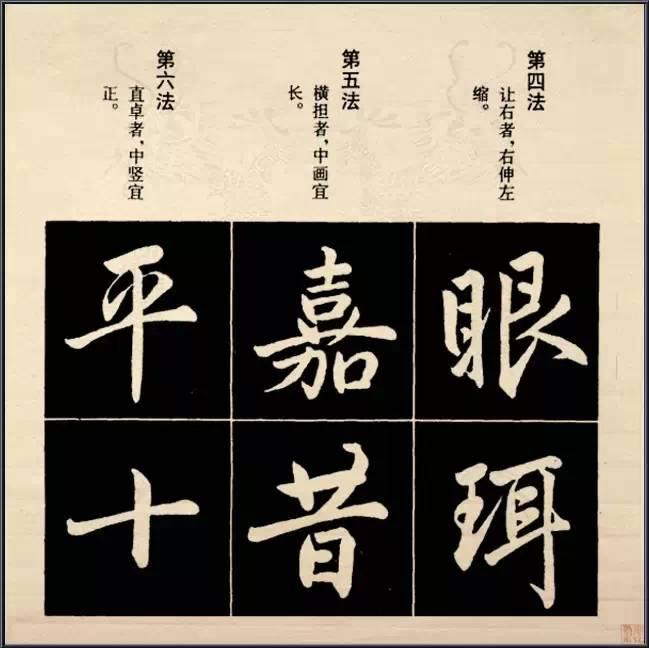 第四法
让右者，右伸左
缩。
眼
珥
第五法
横担者，中画宜
长。
嘉
昔
第六法
直卓者，中竖宜
正。
平
十